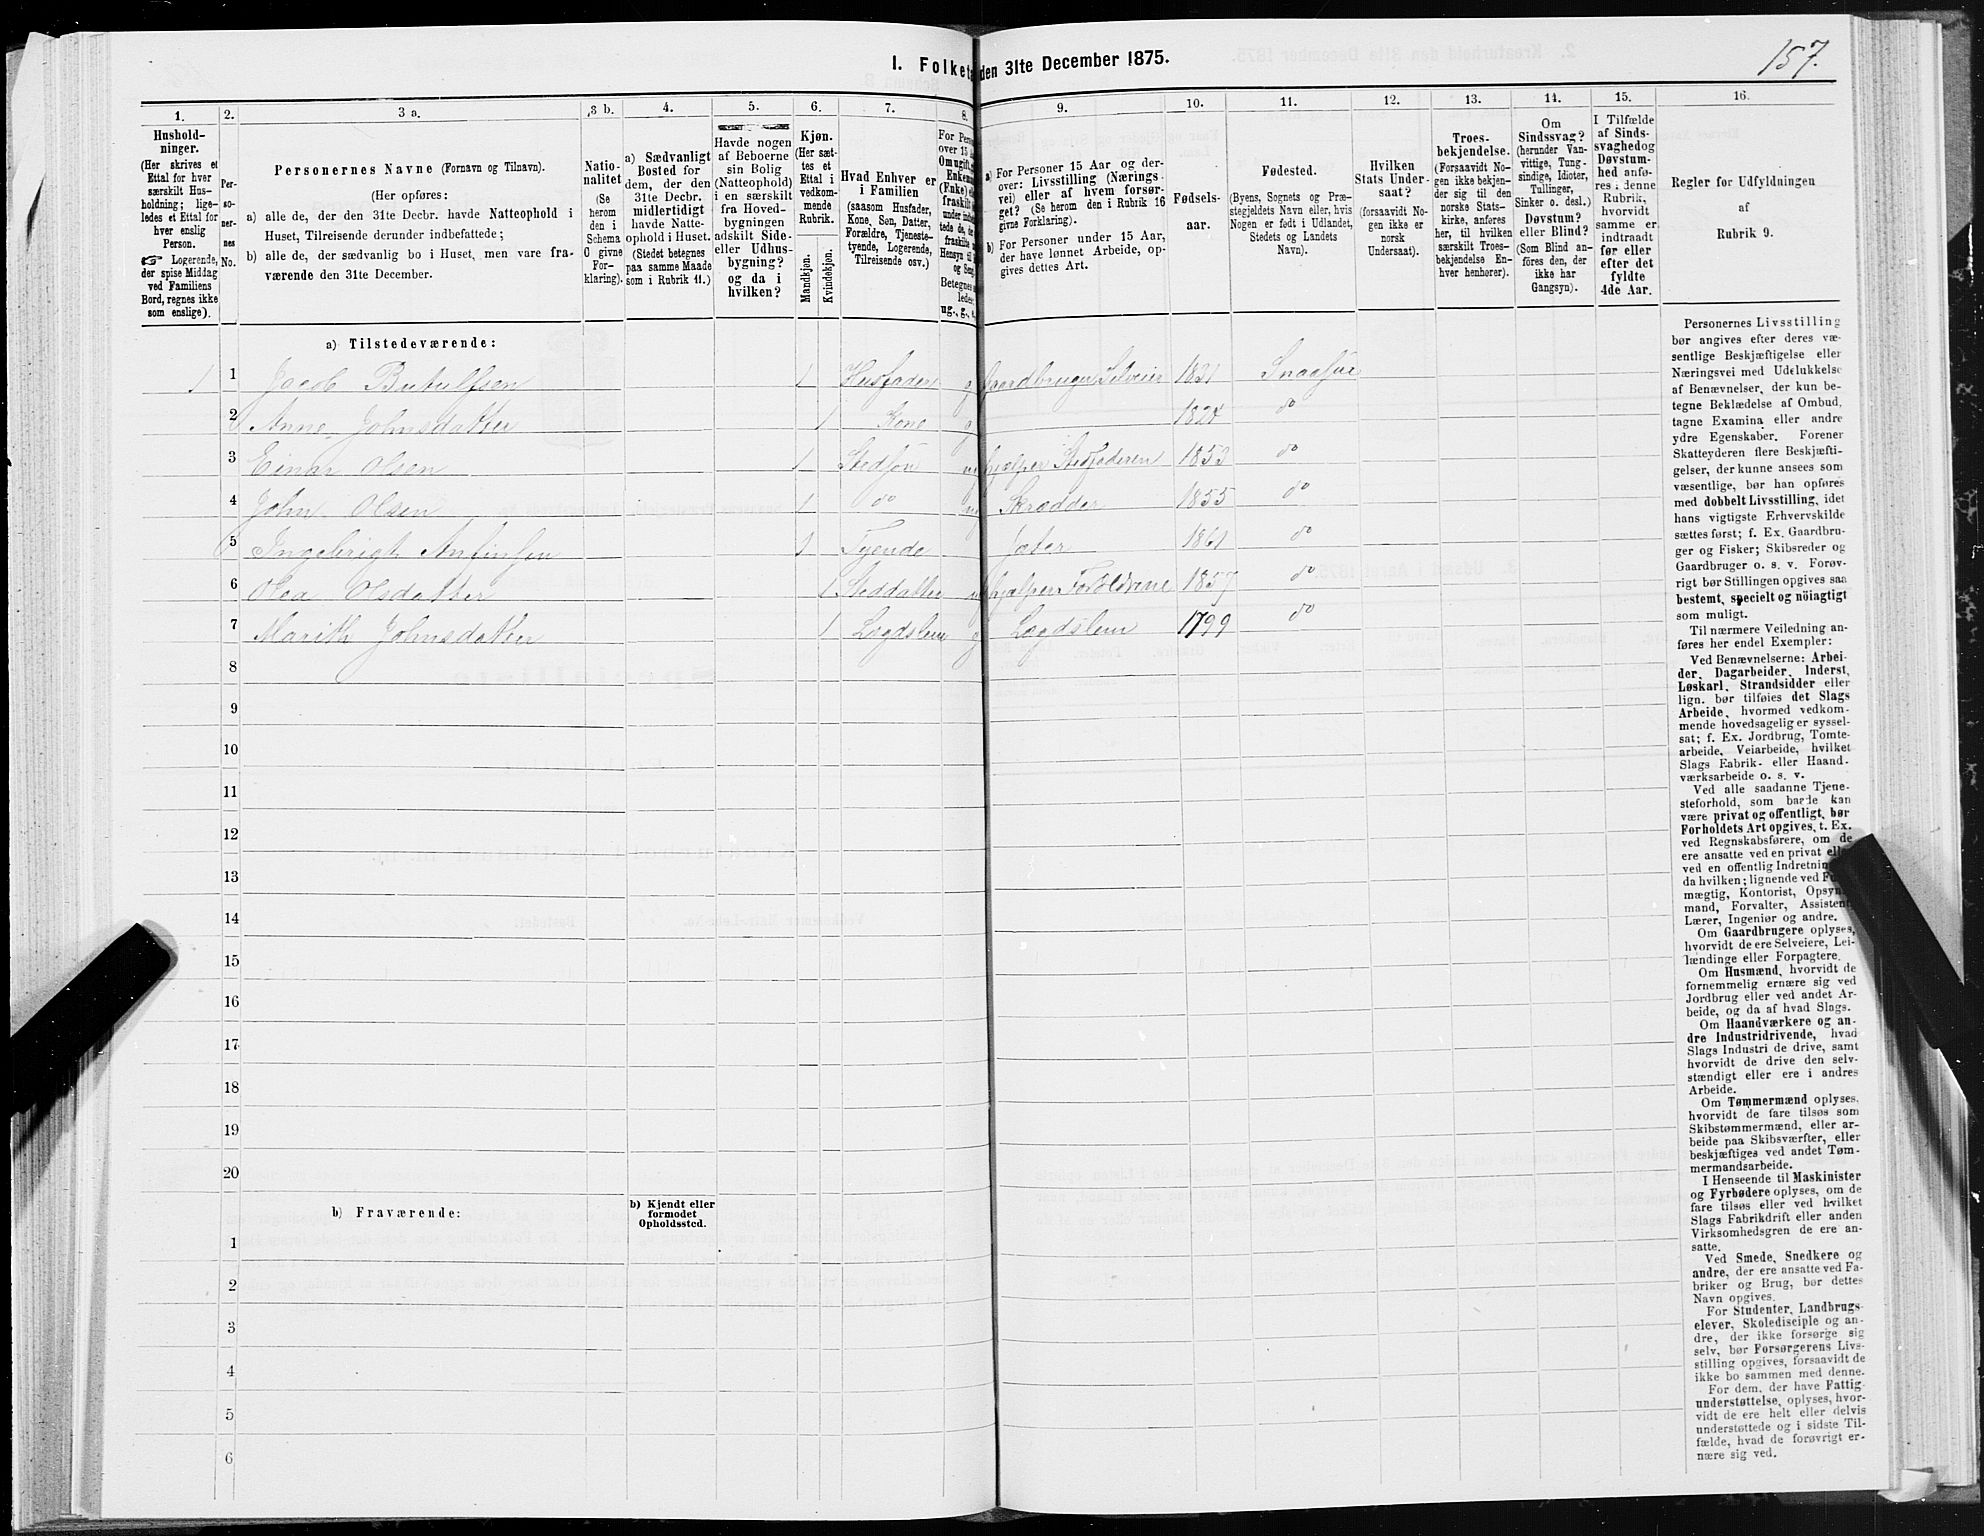 157.
I. Folketæ
den 31te December 1875.
1.
2.
3 a.
3 b.
4.
5.
6.
7.
8.
9.
10.
11.
12.
13.
14.
15.
16.
Hushold-
ninger.
(Her skrives et
Ettal for hver
særskilt Hus-
holdning; lige-
ledes et Ettal for
hver enslig
Person.
☞ Logerende,
der spise Middag
ved Familiens
Bord, regnes ikke
som enslige).
Per-
so-
ner-
nes
No.
Personernes Navne (Fornavn og Tilnavn).
(Her opføres:
a) alle de, der den 31te Decbr. havde Natteophold i
Huset, Tilreisende derunder indbefattede;
b) alle de, der sædvanlig bo i Huset, men vare fra-
værende den 31te December.
Natio-
nalitet
(Se
herom
den i
Schema
O givne
For-
klaring).
a) Sædvanligt
Bosted for
dem, der den
31te Decbr.
midlertidigt
havde Natte-
ophold i Huset.
(Stedet betegnes
paa samme Maade
som i Rubrik 11.)
Havde nogen
af Beboerne
sin Bolig
(Natteophold)
i en særskilt
fra Hoved-
bygningen
adskilt Side-
eller Udhus-
bygning?
og da i
hvilken?
Kjøn.
(Her sæt-
tes et
Ettal i
vedkom-
mende
Rubrik.
Mandkjøn.
Kvindekjøn.
Hvad Enhver er
i Familien
(saasom Husfader,
Kone, Søn, Datter,
Forældre, Tjeneste-
tyende, Logerende,
Tilreisende osv.)
For Perso
over 15
Omugift,
Enkem
(Enke) e
fraskilt
under indb
tede de, de
fraskilte
Hensyn til
og Seng
Betegnes
ledes:
ug., g., e.
a) For Personer 15 Aar og der-
over: Livsstilling (Nærings-
vei) eller af hvem forsør-
get? (Se herom den i Rubrik 16
givne Forklaring).
b) For Personer under 15 Aar,
der have lønnet Arbeide, op-
gives dettes Art.
Fødsels-
aar.
Fødested.
(Byens, Sognets og Præ-
stegjeldets Navn eller, hvis
Nogen er født i Udlandet,
Stedets og Landets
Navn).
Hvilken
Stats Under-
saat?
(forsaavidt No-
gen ikke er
norsk
Undersaat).
Troes-
bekjendelse.
(Forsaavidt No-
gen ikke bekjen-
der sig til den
norske Stats-
kirke, anføres
her, til hvilken
særskilt Troes-
bekjendelse En-
hver henhører).
Om
Sindssvag?
(herunder Van-
vittige, Tung-
sindige, Idioter,
Tullinger,
Sinker o. desl.)
Døvstum?
eller Blind?
(Som Blind an-
føres den, der
ikke har
Gangsyn).
I Tilfælde
af Sinds-
svaghed og
Døvstum-
hed anfø-
res i denne
Rubrik,
hvorvidt
samme er
indtraadt
før eller
efter det
fyldte
4de Aar.
Regler for Udfyldningen
af
Rubrik 9.
a) Tilstedeværende:
1 1 Jacob Butulfsen 1 Husfader g Gaardbruger Selveier 1821 Snaasen
2 Anne Johnsdatter 1 Kone g 1824 do
3 Einar Olsen 1 Stedsøn ug hjælper Stedfaderen 1853 do
4 John Olsen 1 do ug Skrædder 1855 do
5 Ingebrigt Anfinsen 1 Tyende Jæter 1861 do
6 Olea Olsdatter 1 Steddatter ug hjælper Forældrene 1857 do
7 Marith Johnsdatter 1 Lægdslem g Lægdslem 1799 do
8
9
10
11
12
13
14
15
16
17
18
19
20
b) Fraværende:
b) Kjendt eller
formodet
Opholdssted.
1
2
3
4
5
6
Personernes Livsstilling
bør angives efter deres væ-
sentlige Beskjæftigelse eller
Næringsvei med Udelukkelse
af Benævnelser, der kun be-
tegne Beklædelse af Ombud,
tagne Examina eller andre
ydre Egenskaber. Forener
Skatteyderen flere Beskjæfti-
gelser, der kunne ansees som
væsentlige, bør han opføres
med dobbelt Livsstilling, idet
hans vigtigste Erhvervskilde
sættes først; f. Ex. Gaardbru-
ger og Fisker; Skibsreder og
Gaardbruger o. s. v. Forøv-
rigt bør Stillingen opgives saa
bestemt, specielt og nöiagtigt
som muligt.
Til nærmere Veiledning an-
føres her endel Exempler:
Ved Benævnelserne: Arbei-
der, Dagarbeider, Inderst,
Løskarl, Strandsidder eller
lign. bør tilføies det Slags
Arbeide, hvormed vedkom-
mende hovedsagelig er syssel-
sat; f. Ex. Jordbrug, Tomte-
arbeide, Veiarbeide, hvilket
Slags Fabrik- eller Haand-
værksarbeide o. s. v.
Ved alle saadanne Tjene-
steforhold, som baade kan
være privat og offentligt, bør
Forholdets Art opgives, t. Ex.
ved Regnskabsførere, om de
ere ansatte ved en privat elle
ved en offentlig Indretnin
da hvilken; lignende ved F
mægtig, Kontorist, Opsyn
mand, Forvalter, Assistent
Lærer, Ingeniør og andre.
Om Gaardbrugere oplyses,
hvorvidt de ere Selveiere, Lei-
lændinge eller Forpagtere.
Om Husmænd, hvorvidt de
fornemmelig ernære sig ved
Jordbrug eller ved andet Ar-
beide, og da af hvad Slags.
Om Haandværkere og an-
dre Industridrivende, hvad
Slags Industri de drive, samt
hvorvidt de drive den selv-
stændigt eller ere i andres
Arbeide.
Om Tømmermænd oplyses,
hvorvidt de fare tilsøs som
Skibstømmermænd, eller ar-
beide paa Skibsværfter, eller
beskjæftiges ved andet Tøm-
mermandsarbeide.
I Henseende til Maskinister
og Fyrbødere oplyses, om de
fare tilsøs eller ved hvilket
Slags Fabrikdrift eller anden
Virksomhedsgren de ere an-
satte.
Ved Smede, Snedkere og
andre, der ere ansatte ved Fa-
briker og Brug, bør dettes
Navn opgives.
For Studenter, Landbrugs-
elever, Skoledisciple og an-
dre, der ikke forsørge sig
selv, bør Forsørgerens Livs-
stilling opgives, forsaavidt de
ikke bo sammen med denne.
For dem, der have Fattig-
understøttelse, oplyses, hvor-
vidt de ere helt eller delvis
understøttede og i sidste Til-
fælde, hvad de forøvrigt er-
nære sig ved.